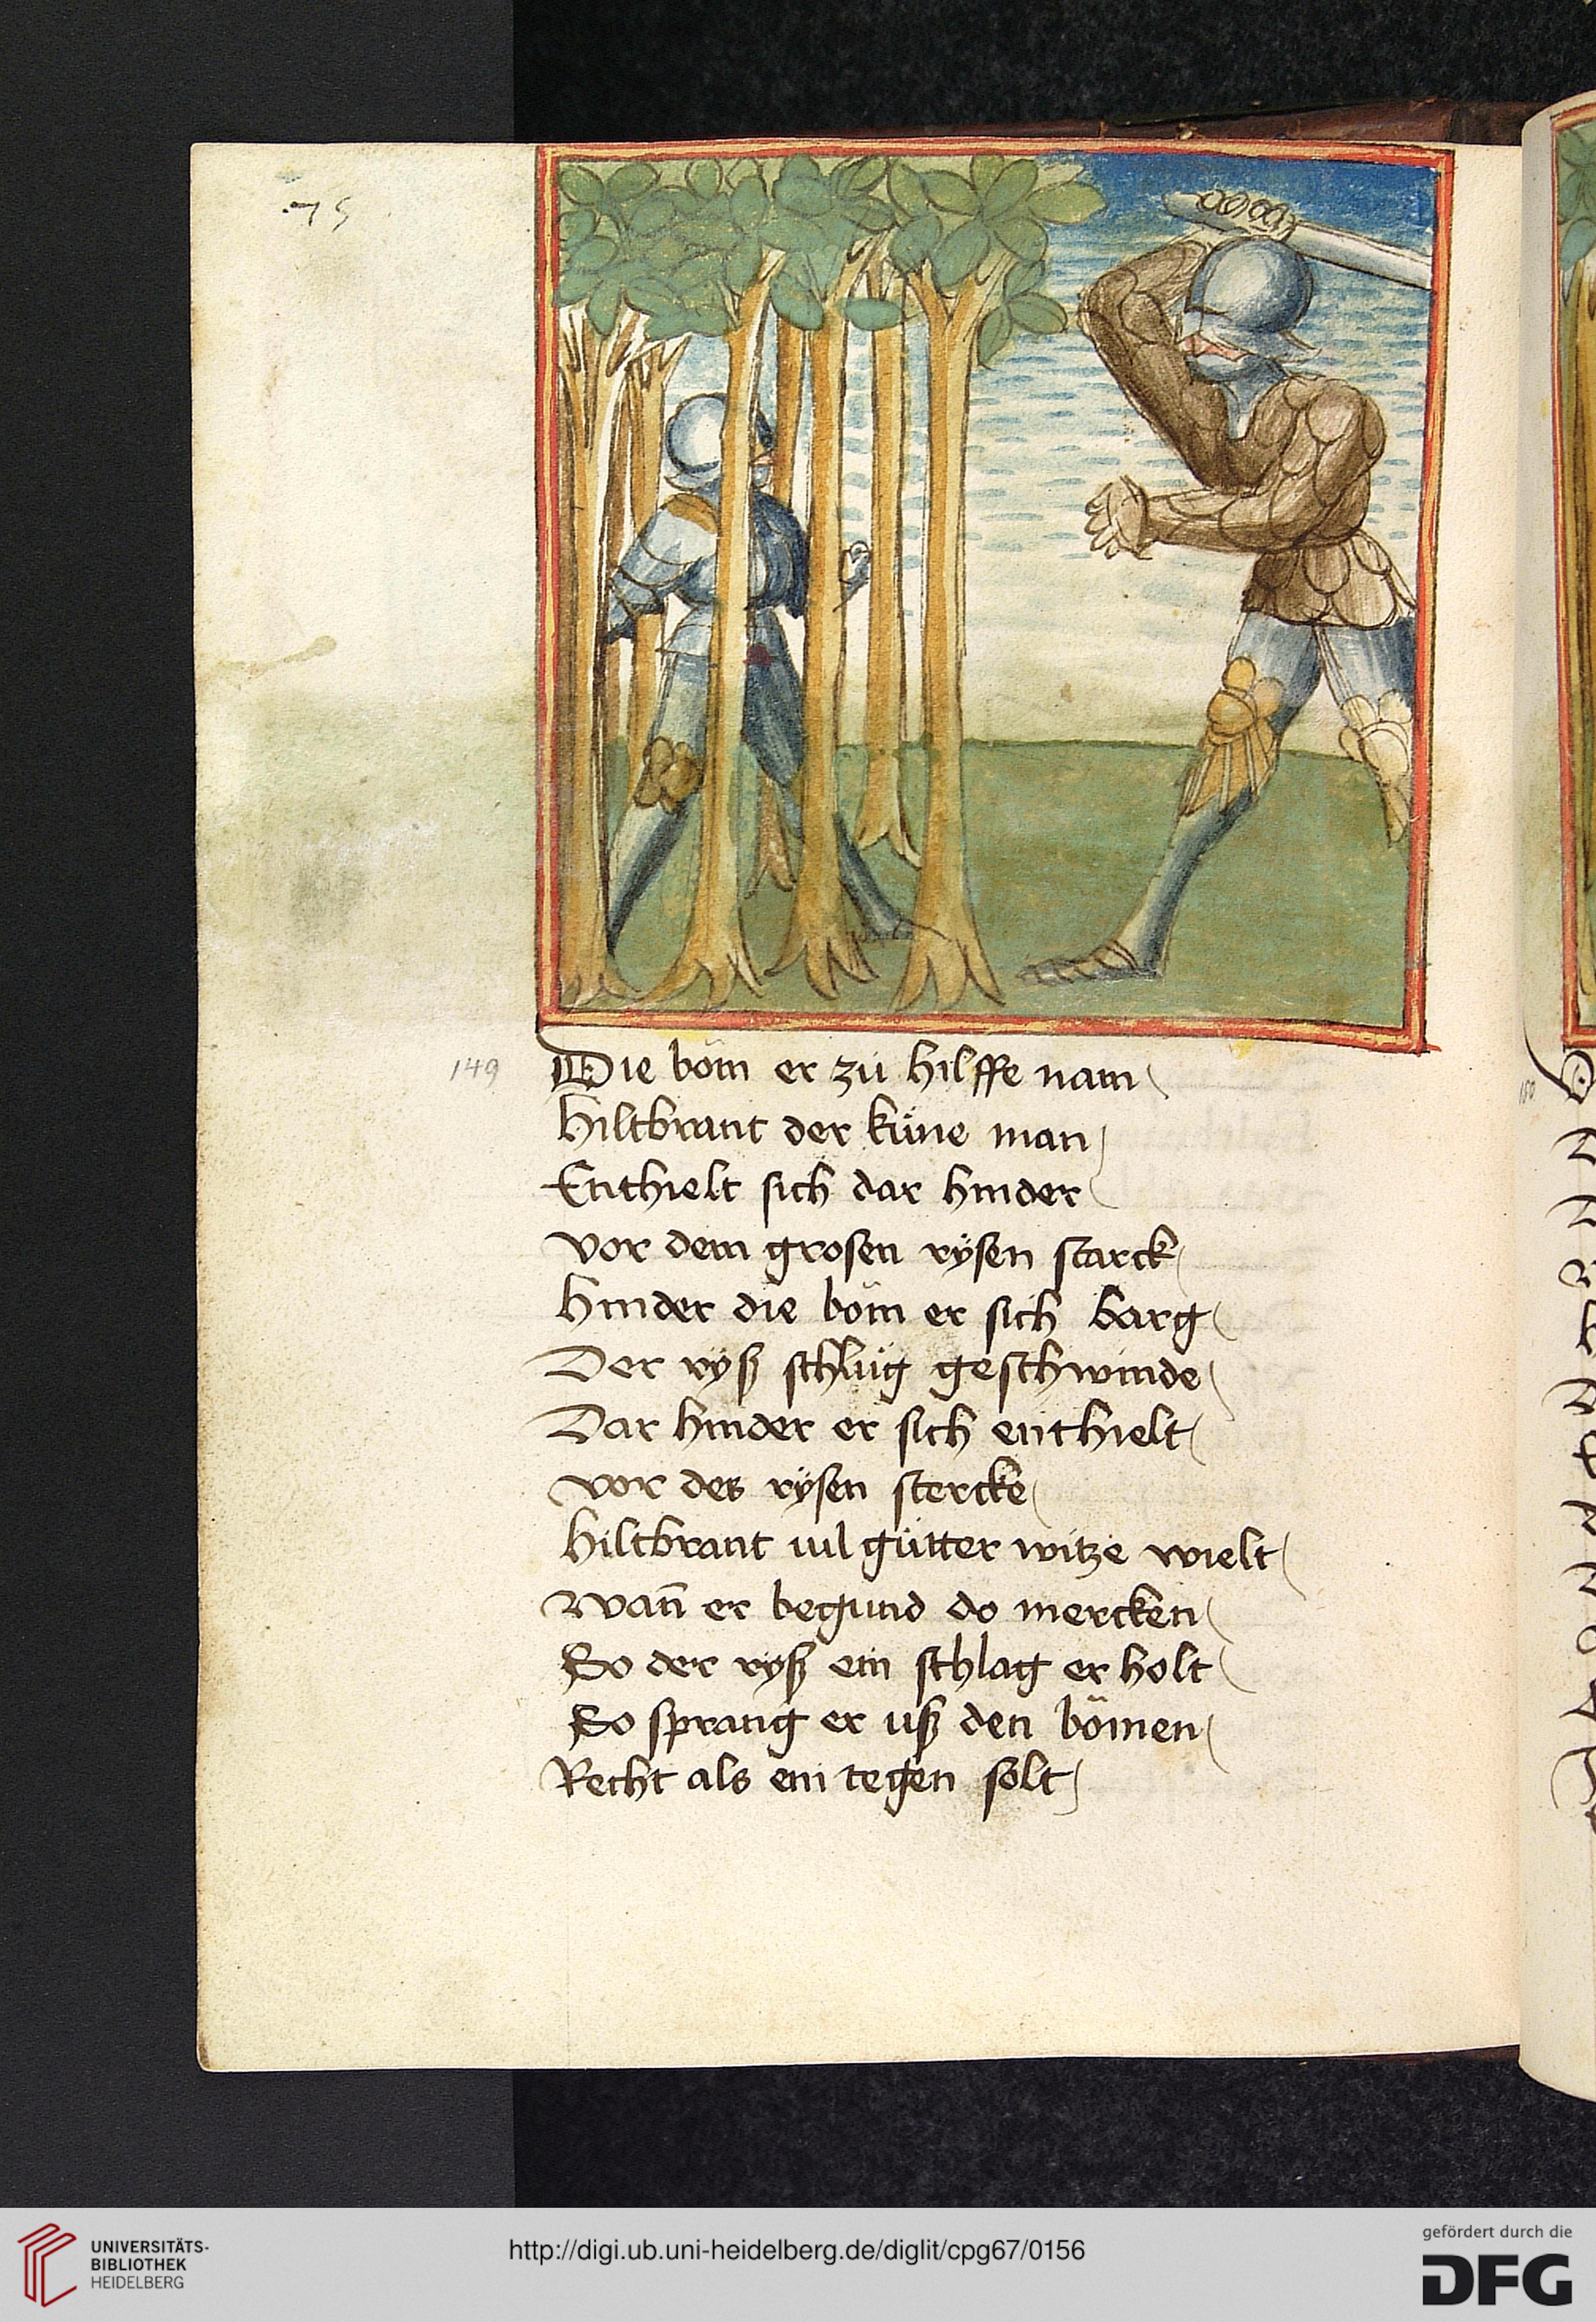 75
149
Die böm er zü hilffe nam
Hiltbrant der küne man
Enthielt sich dar hinder
Vor dem grosen rÿsen starck
Hinder die böm er sich barg
Der ryß schlüg geschwinde
Dar hinder er sich enthielt
Vor des rÿsen stercke
Hiltbrant vil gütter witze wielt
Wañ er begund do mercken
So der ryß ein schlag er holt
So sprang er uß den bömen
Recht als ein tegen solt
150
UNIVERSITÄTS-
BIBLIOTHEK
HEIDELBERG
http://digi.ub.uni-heidelberg.de/diglit/cpg67/0156
gefördert durch die
DFG